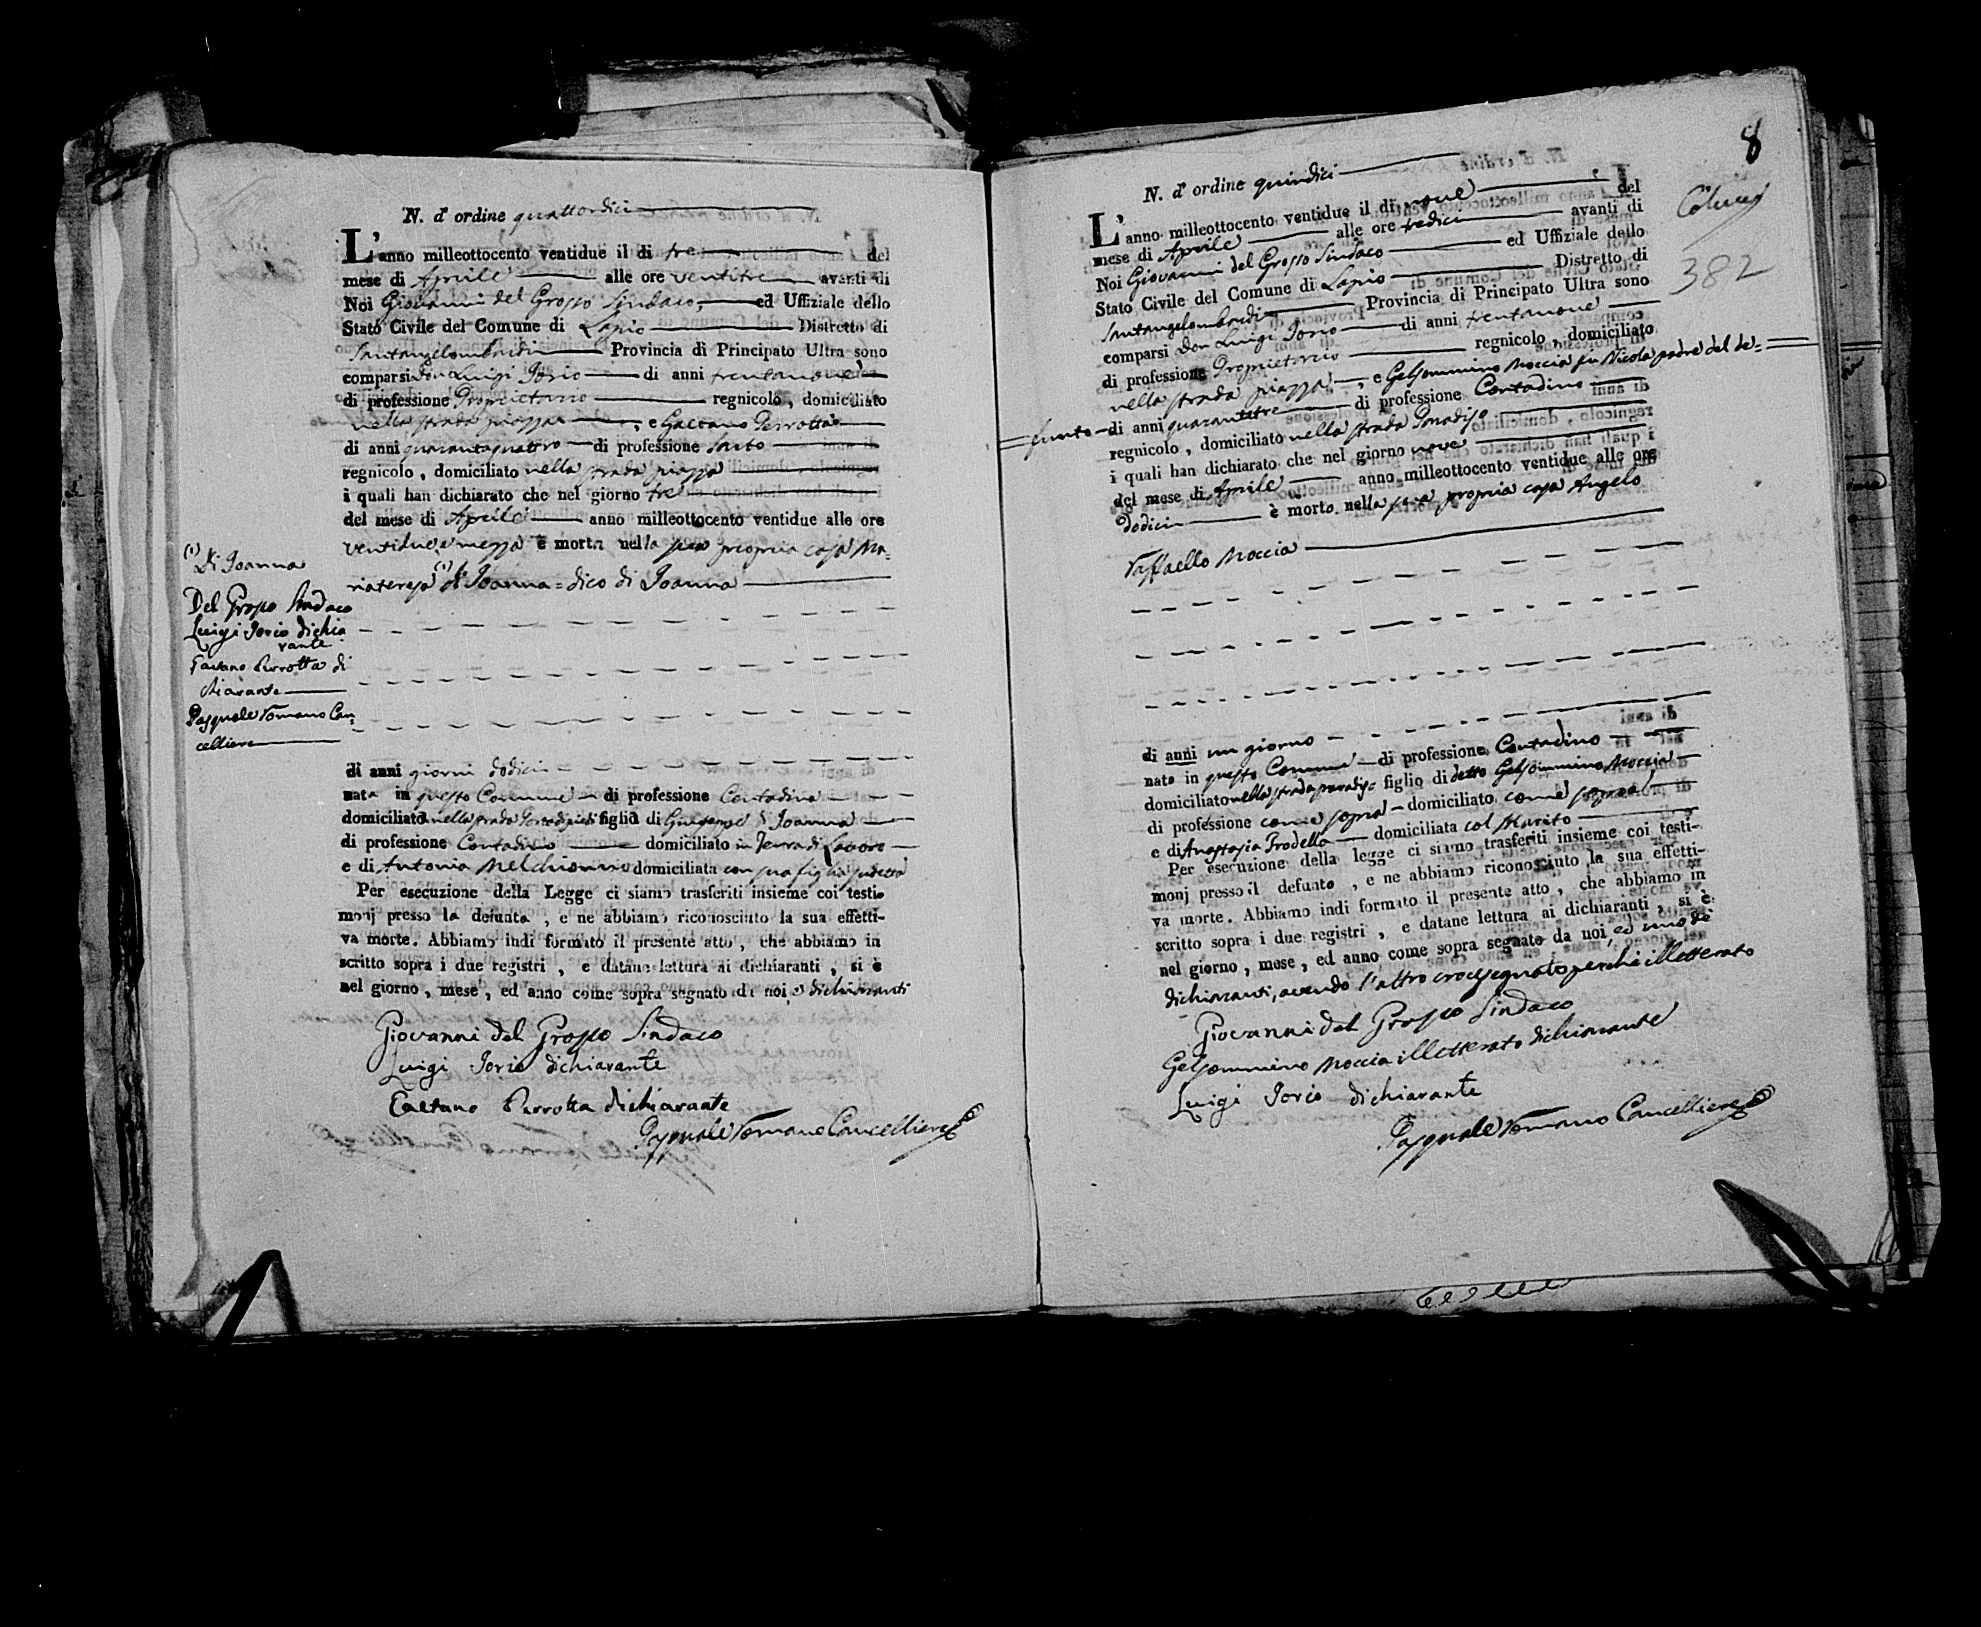 N. d' ordine quattordici
L'anno milleottocento ventidue il di tre del
mese di Aprile alle ore ventitre avanti di
Noi Giovanni del Grosso Sindaco, ed Uffiziale dello
Stato Civile del Comune di Lapio Distretto di
Santangelombardi Provincia di Principato Ultra sono
comparsi Don Luigi Iorio di anni trentanove
di professione Proprietario regnicolo, domiciliato
nella strada piazza, e Gaetano Perrotta
di anni quarantaquattro di professione Sarto
regnicolo, domiciliato nella strada piazza
i quali han dichiarato che nel giorno tre
del mese di Aprile anno milleottocento ventidue alle ore
ventidue, e mezza è morta nella sua propria casa Ma-
riateresa (1) di Ioanna = dico di Ioanna
(1) Di Ioanna
Del Grosso Sindaco
Luigi Iorio dichia
rante
Gaetano Perrotta di
chiarante
Pasquale Romano Can-
celliere
di anni giorni dodici
nata in questo Comune di professione Contadina
domiciliata nella strada figlia di Ioanna
di professione Contadino domiciliato in Terra di Lavoro
e di Antonia Melchionno domiciliata con sua figlia sudetta
Per esecuzione della Legge ci siamo trasferiti insieme coi testi-
monj presso la defunta, e ne abbiamo riconosciuto la sua effetti-
va morte. Abbiamo indi formato il presente atto, che abbiamo in
scritto sopra i due registri, e datane lettura ai dichiaranti, si è
nel giorno, mese, ed anno come sopra segnato da noi, e dichiaranti
Giovanni del Grosso Sindaco
Luigi Iorio dichiarante
Gaetano Perrotta dichiarante
Pasquale Romano Cancelliere
8
382
N. d' ordine quindici
L'anno milleottocento ventidue il di nove del
mese di Aprile alle ore tredici avanti di
Noi Giovanni del Grosso Sindaco ed Uffiziale dello
Stato Civile del Comune di Lapio Distretto di
Santangelombardi Provincia di Principato Ultra sono
comparsi Don Luigi Iorio di anni trentanove
di professione Proprietario regnicolo, domiciliato
nella strada piazza, e Gelsommino Moccia fu Nicola padre del de-
funto di anni quarantatre di professione Contadino
regnicolo, domiciliato nella strada Paradiso
i quali han dichiarato che nel giorno nove
del mese di Aprile anno milleottocento ventidue alle ore
dodici è morto nella sua propria casa Angelo
Raffaello Moccia
di anni un giorno
nato in questo Comune di professione Contadino
domiciliato nella strada paradiso figlio di detto Gelsommino Moccia
di professione come sopra domiciliato come sopra
e di Anastasia Trodella domiciliata col Marito
Per esecuzione della legge ci siamo trasferiti insieme coi testi-
monj presso il defunto, e ne abbiamo riconosciuto la sua effetti-
va morte. Abbiamo indi formato il presente atto, che abbiamo in
scritto sopra i due registri, e datane lettura ai dichiaranti, si è
nel giorno, mese, ed anno come sopra segnato da noi, ed uno de'
dichiaranti, avendo l'altro crocesegnato perchè illetterato
Giovanni del Grosso Sindaco
Gelsommino Moccia illetterato dichiarante
Luigi Iorio dichiarante
Pasquale Romano Cancelliere